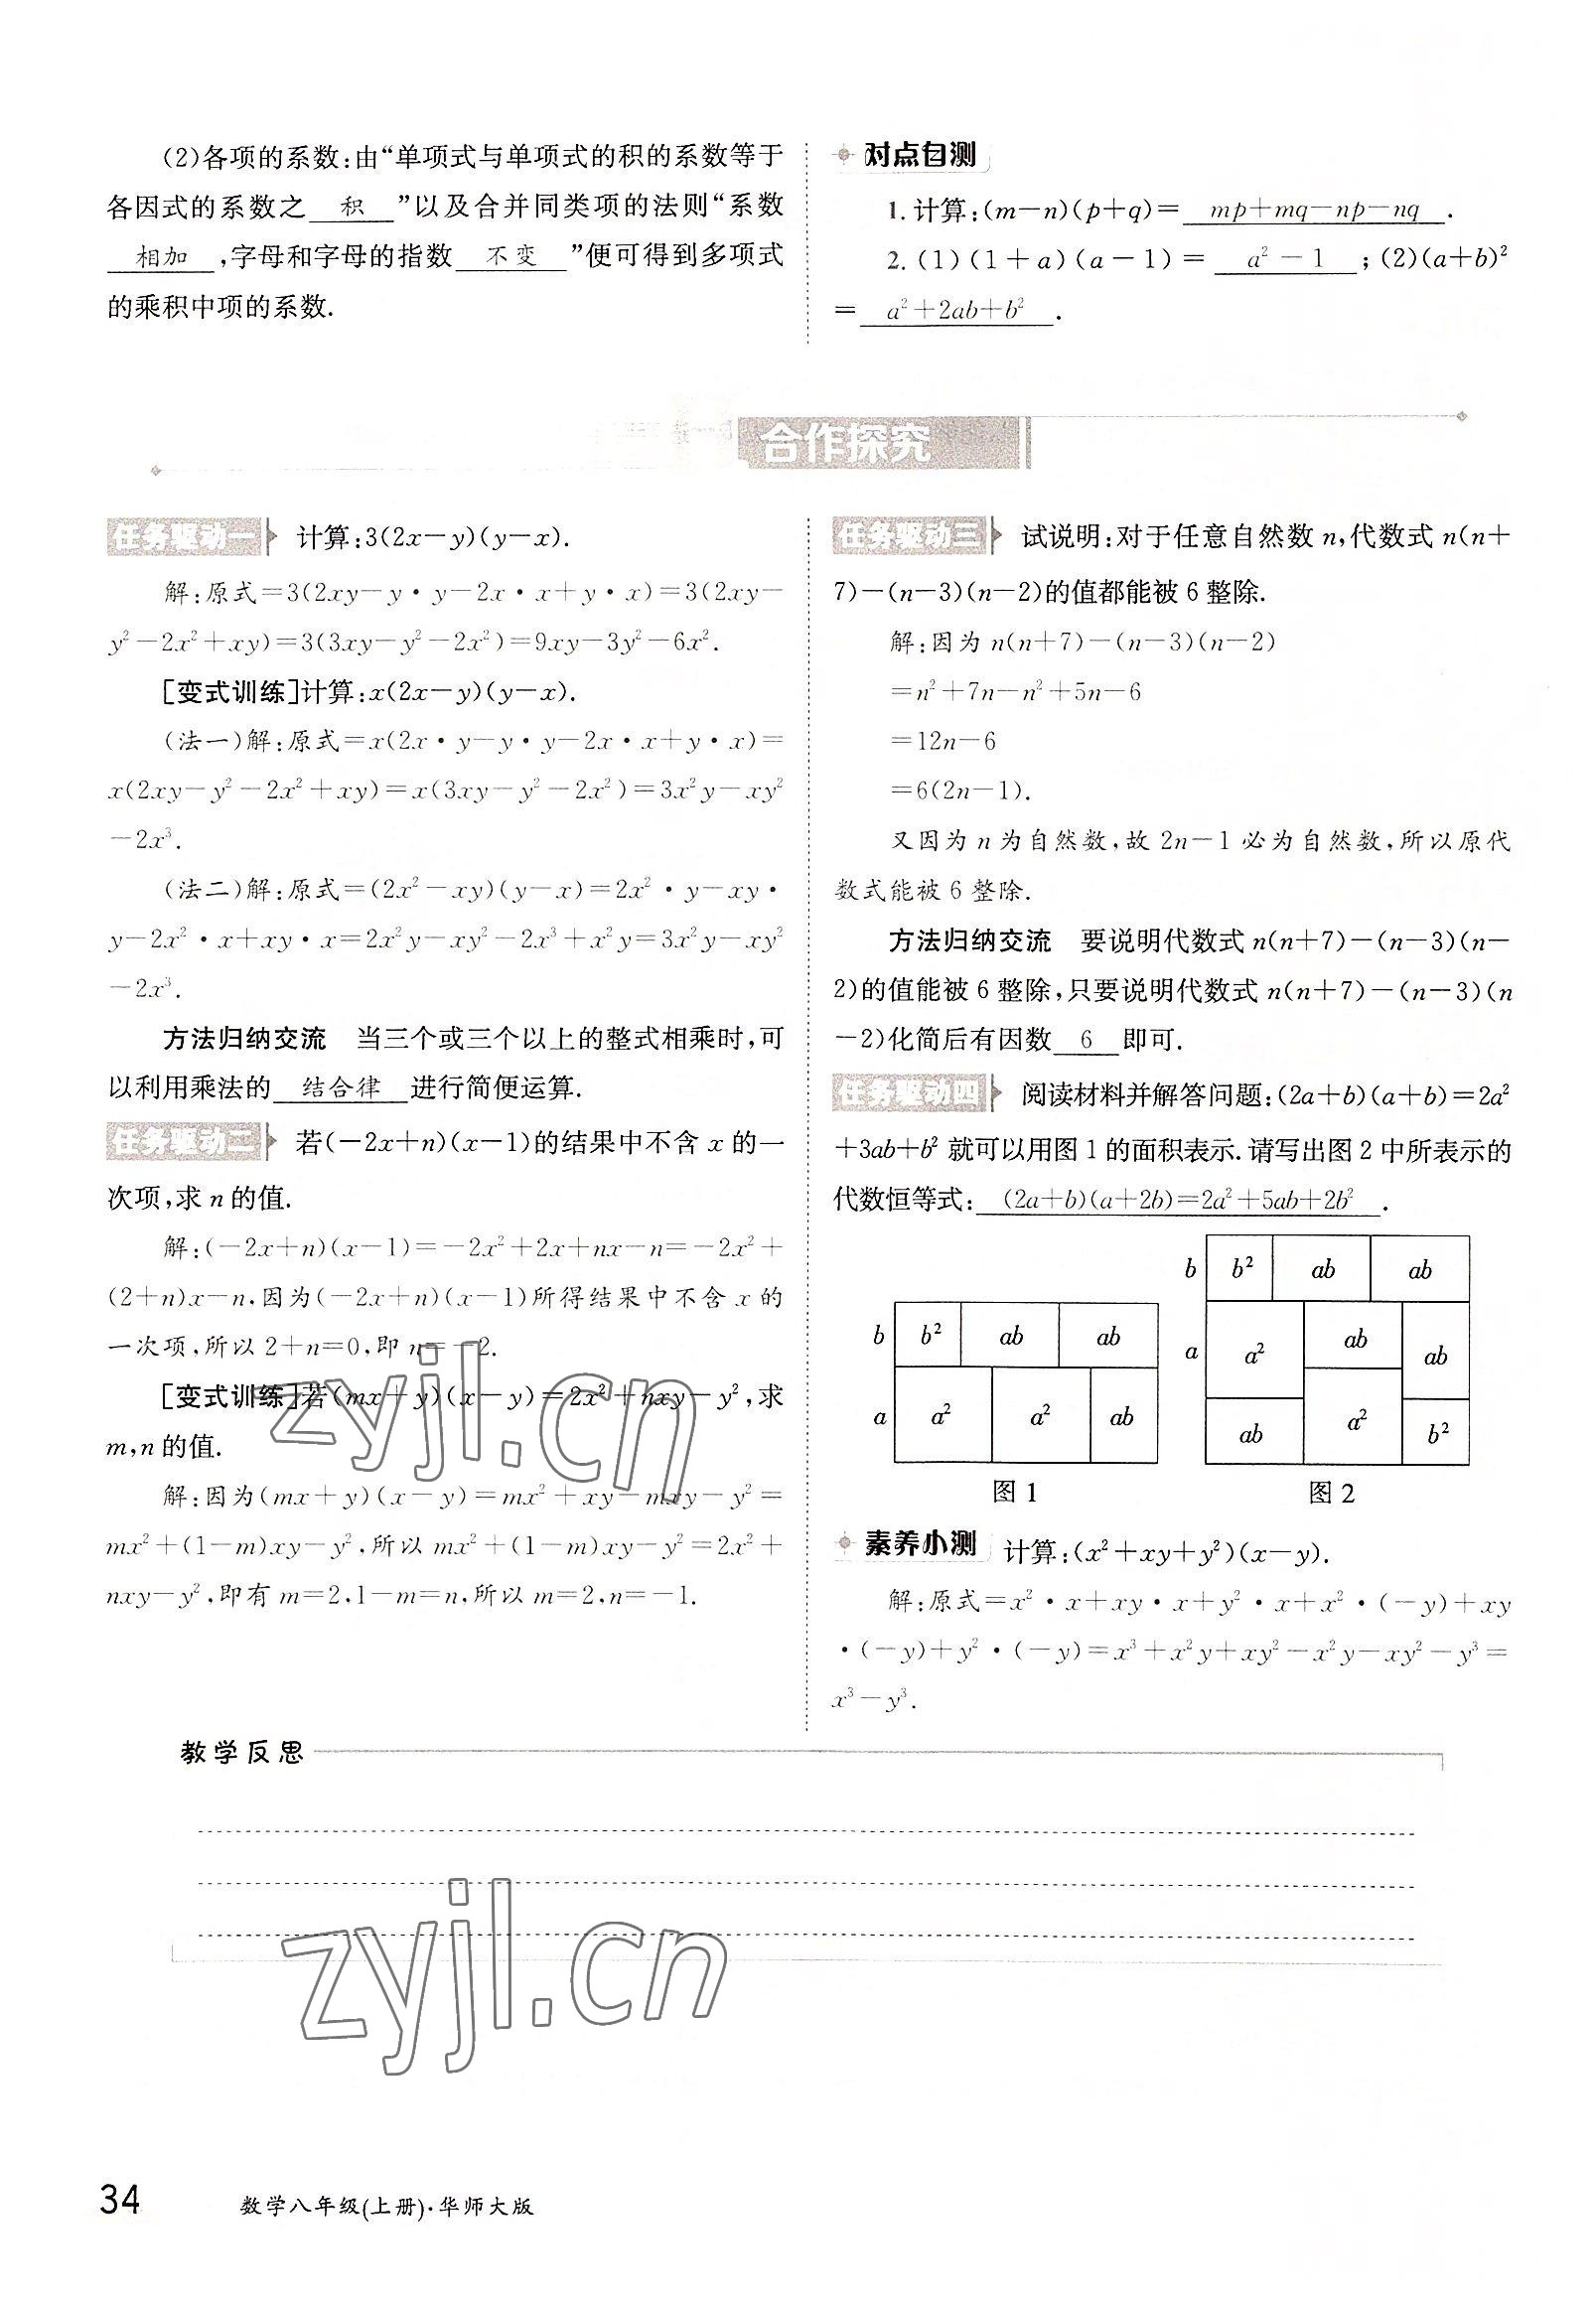 (2)各项的系数:由“单项式与单项式的积的系数等于
各因式的系数之 积 ”以及合并同类项的法则“系数
相加 ,字母和字母的指数 不变 ”便可得到多项式
的乘积中项的系数.
对点自测
1.计算:(m-n)(p+q)= mp+mq-np-nq .
2.(1)(1+a)(a-1)= a²-1 ;(2)(a+b)²
= a²+2ab+b² .
合作探究
任务驱动一 计算:3(2x-y)(y-x).
解:原式=3(2xy-y·y-2x·x+y·x)=3(2xy-
y²-2x²+xy)=3(3xy-y²-2x²)=9xy-3y²-6x².
[变式训练]计算:x(2x-y)(y-x).
(法一)解:原式=x(2x·y-y·y-2x·x+y·x)=
x(2xy-y²-2x²+xy)=x(3xy-y²-2x²)=3x²y-xy²
-2x³.
(法二)解:原式=(2x²-xy)(y-x)=2x²·y-xy·
y-2x²·x+xy·x=2x²y-xy²-2x³+x²y=3x²y-xy²
-2x³.
方法归纳交流 当三个或三个以上的整式相乘时,可
以利用乘法的 结合律 进行简便运算.
任务驱动二 若(-2x+n)(x-1)的结果中不含 x 的一
次项,求 n 的值.
解:(-2x+n)(x-1)=-2x²+2x+nx-n=-2x²+
(2+n)x-n,因为(-2x+n)(x-1)所得结果中不含 x 的
一次项,所以 2+n=0,即 n=-2.
[变式训练]若(mx+y)(x-y)=2x²+nxy-y²,求
m,n 的值.
解:因为(mx+y)(x-y)=mx²+xy-mxy-y²=
mx²+(1-m)xy-y²,所以 mx²+(1-m)xy-y²=2x²+
nxy-y²,即有 m=2,1-m=n,所以 m=2,n=-1.
任务驱动三 试说明:对于任意自然数 n,代数式 n(n+
7)-(n-3)(n-2)的值都能被 6 整除.
解:因为 n(n+7)-(n-3)(n-2)
=n²+7n-n²+5n-6
=12n-6
=6(2n-1).
又因为 n 为自然数,故 2n-1 必为自然数,所以原代
数式能被 6 整除.
方法归纳交流 要说明代数式 n(n+7)-(n-3)(n-
2)的值能被 6 整除,只要说明代数式 n(n+7)-(n-3)(n
-2)化简后有因数 6 即可.
任务驱动四 阅读材料并解答问题:(2a+b)(a+b)=2a²
+3ab+b² 就可以用图 1 的面积表示.请写出图 2 中所表示的
代数恒等式: (2a+b)(a+2b)=2a²+5ab+2b² .
b b² ab ab
a a² a² ab
图 1
b b² ab ab
a a² ab ab
ab a² b²
图 2
素养小测 计算:(x²+xy+y²)(x-y).
解:原式=x²·x+xy·x+y²·x+x²·(-y)+xy
·(-y)+y²·(-y)=x³+x²y+xy²-x²y-xy²-y³=
x³-y³.
教学反思
zyjl.cn
zyjl.cn
34 数学八年级(上册)·华师大版